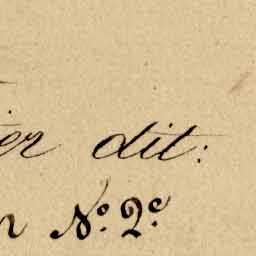 er dit:
n Nº 2º